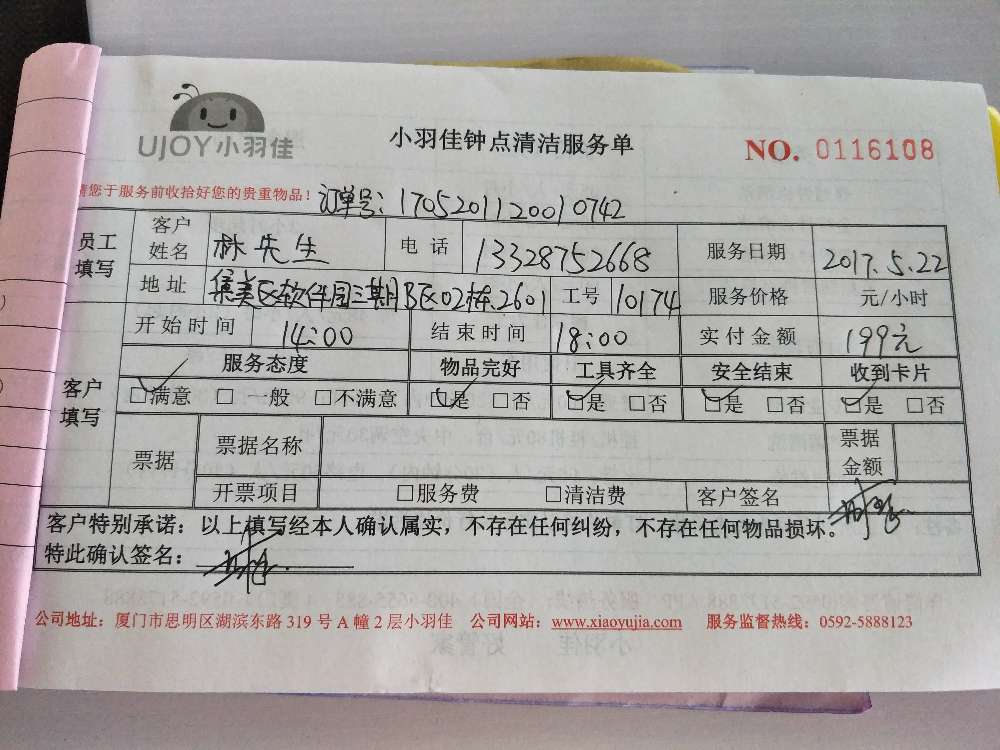 UJOY小羽佳
小羽佳钟点清洁服务单
NO. 0116108
请您于服务前收拾好您的贵重物品！ 订单号：1705201120010742
员工填写 客户姓名 林先生 电话 13328752668 服务日期 2017.5.22
地址 集美区软件园三期B区02栋2601 工号 10174 服务价格 元/小时
开始时间 14:00 结束时间 18:00 实付金额 199元
客户填写 服务态度 物品完好 工具齐全 安全结束 收到卡片
☑满意 □一般 □不满意 ☑是 □否 ☑是 □否 ☑是 □否 ☑是 □否
票据 票据名称 票据金额
开票项目 □服务费 □清洁费 客户签名
客户特别承诺：以上填写经本人确认属实，不存在任何纠纷，不存在任何物品损坏。
特此确认签名：
公司地址：厦门市思明区湖滨东路 319 号 A 幢 2 层小羽佳 公司网站：www.xiaoyujia.com 服务监督热线：0592-5888123